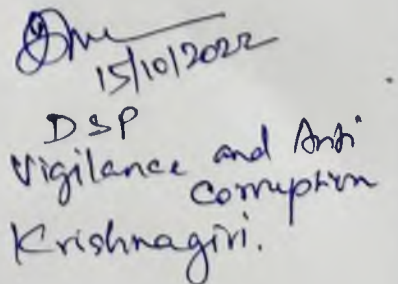 15/10/2022
DSP
Vigilance and Anti
Corruption
Krishnagiri.